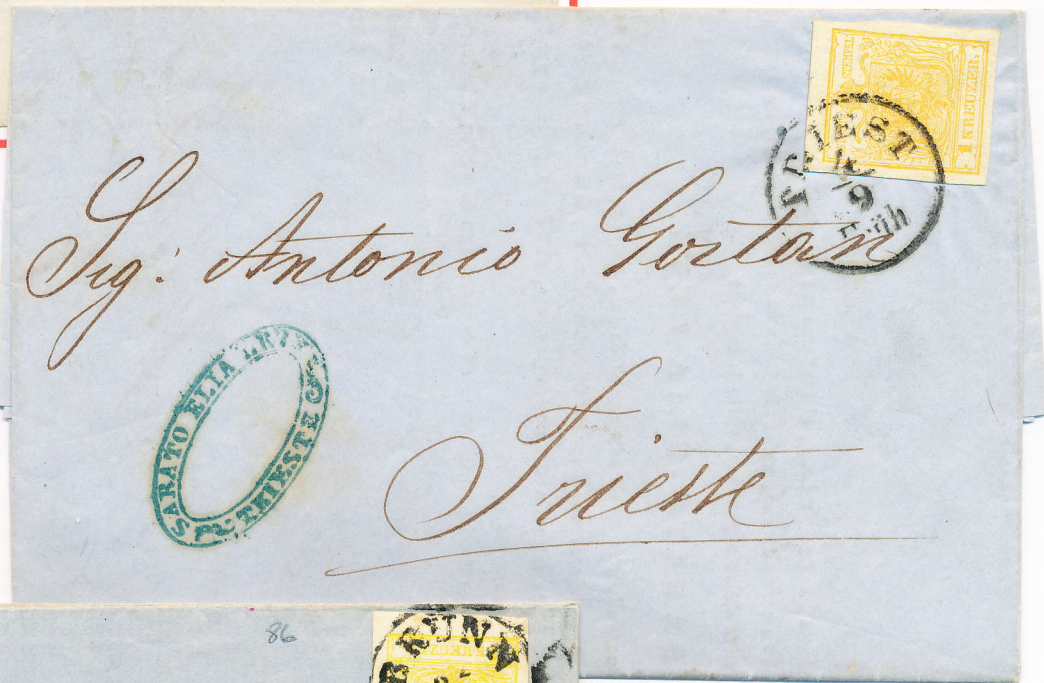 STEMPEL
1 KREUZER
TRIEST
9
Früh
Sig: Antonio Gortan
SARATO ELIA LEVI
TRIESTE
Trieste
86
BRÜNN